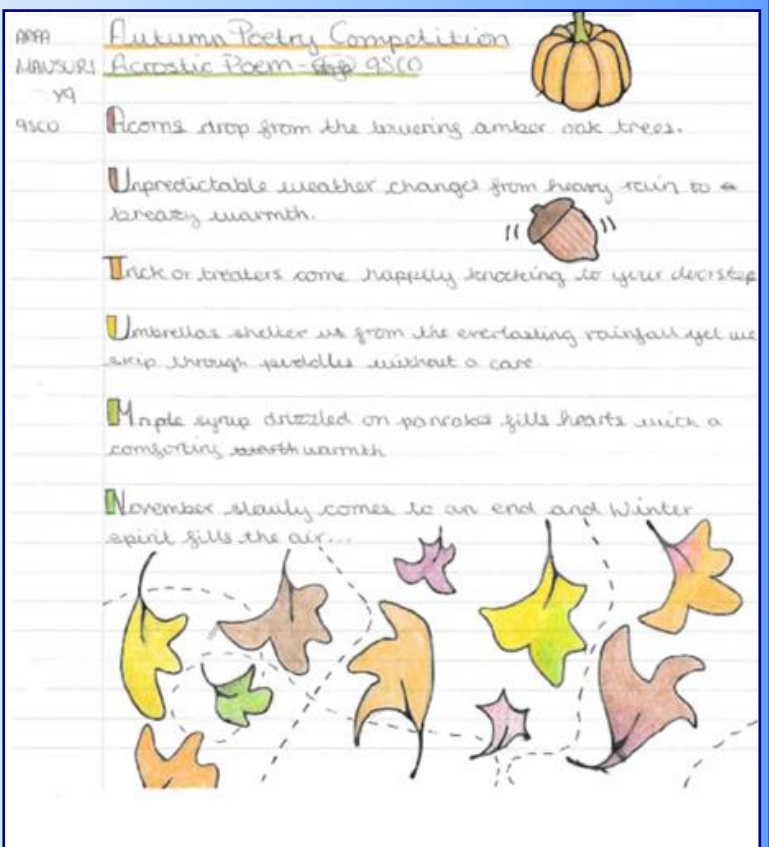 Autumn Poetry Competition
Acrostic Poem - 9SCO
ARFA
MANSURI
Y9
9SCO
Acorns drop from the towering amber oak trees.
Unpredictable weather changes from heavy rain to a
breazy warmth.
Trick or treaters come happily knocking to your doorstep
Umbrellas shelter us from the everlasting rainfall yet we
skip through puddles without a care
Maple syrup drizzled on pancakes fills hearts with a
comforting warmth
November slowly comes to an end and Winter
spirit fills the air...